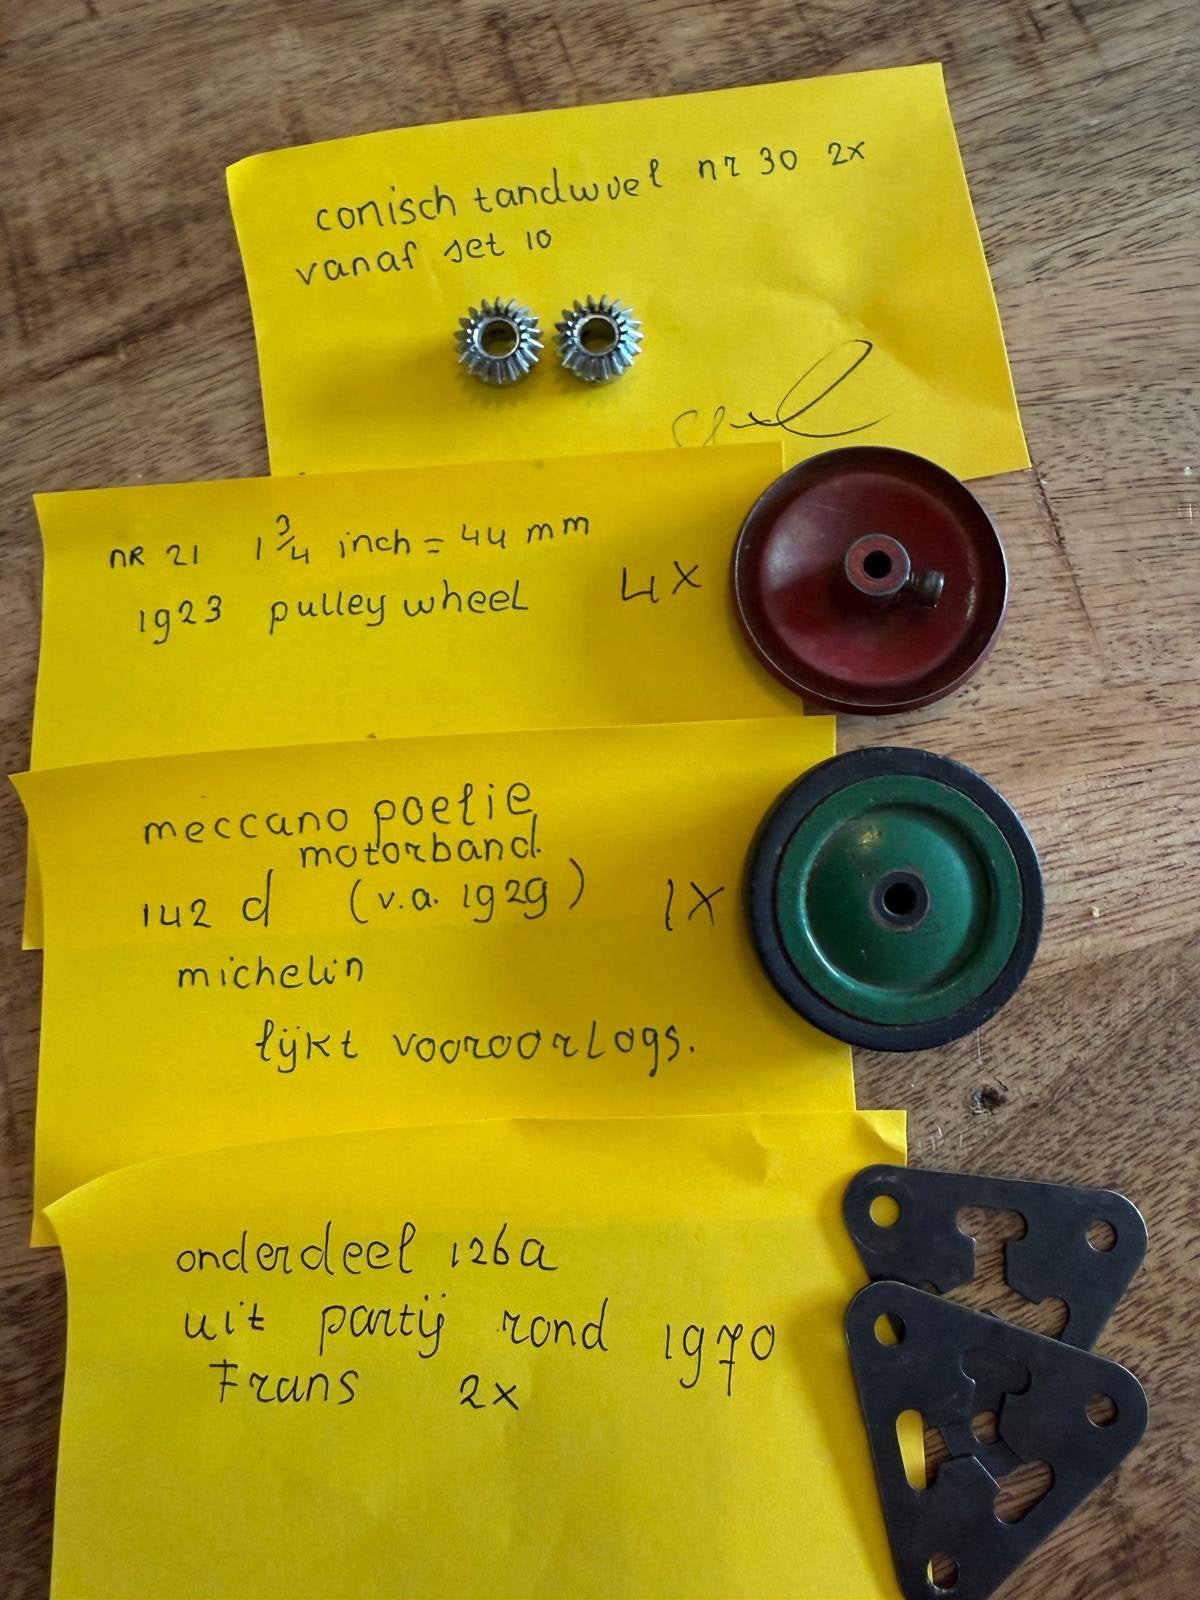 conisch tandwuel nr 30 2x
vanaf set 10
nR 21 1 3/4 inch = 44 mm
1923 pulley wheel 4x
meccano poelie
motorband.
142 d (v.a. 1929) 1x
michelin
lijkt vooroorlogs.
onderdeel 126a
uit partij rond 1970
Frans 2x